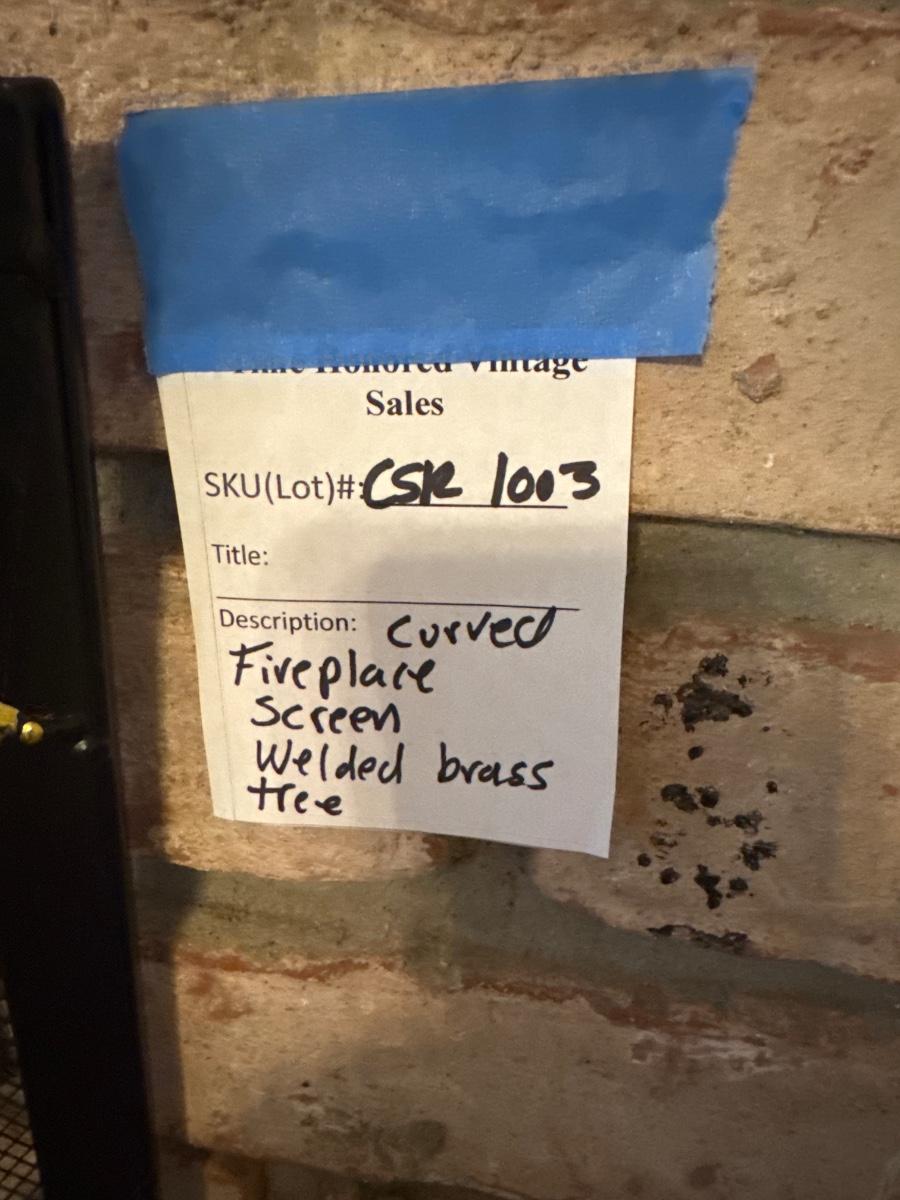 Time Honored Vintage
Sales
SKU(Lot)#: CSR 1003
Title:
Description: Curved
Fireplace
Screen
Welded brass
tree